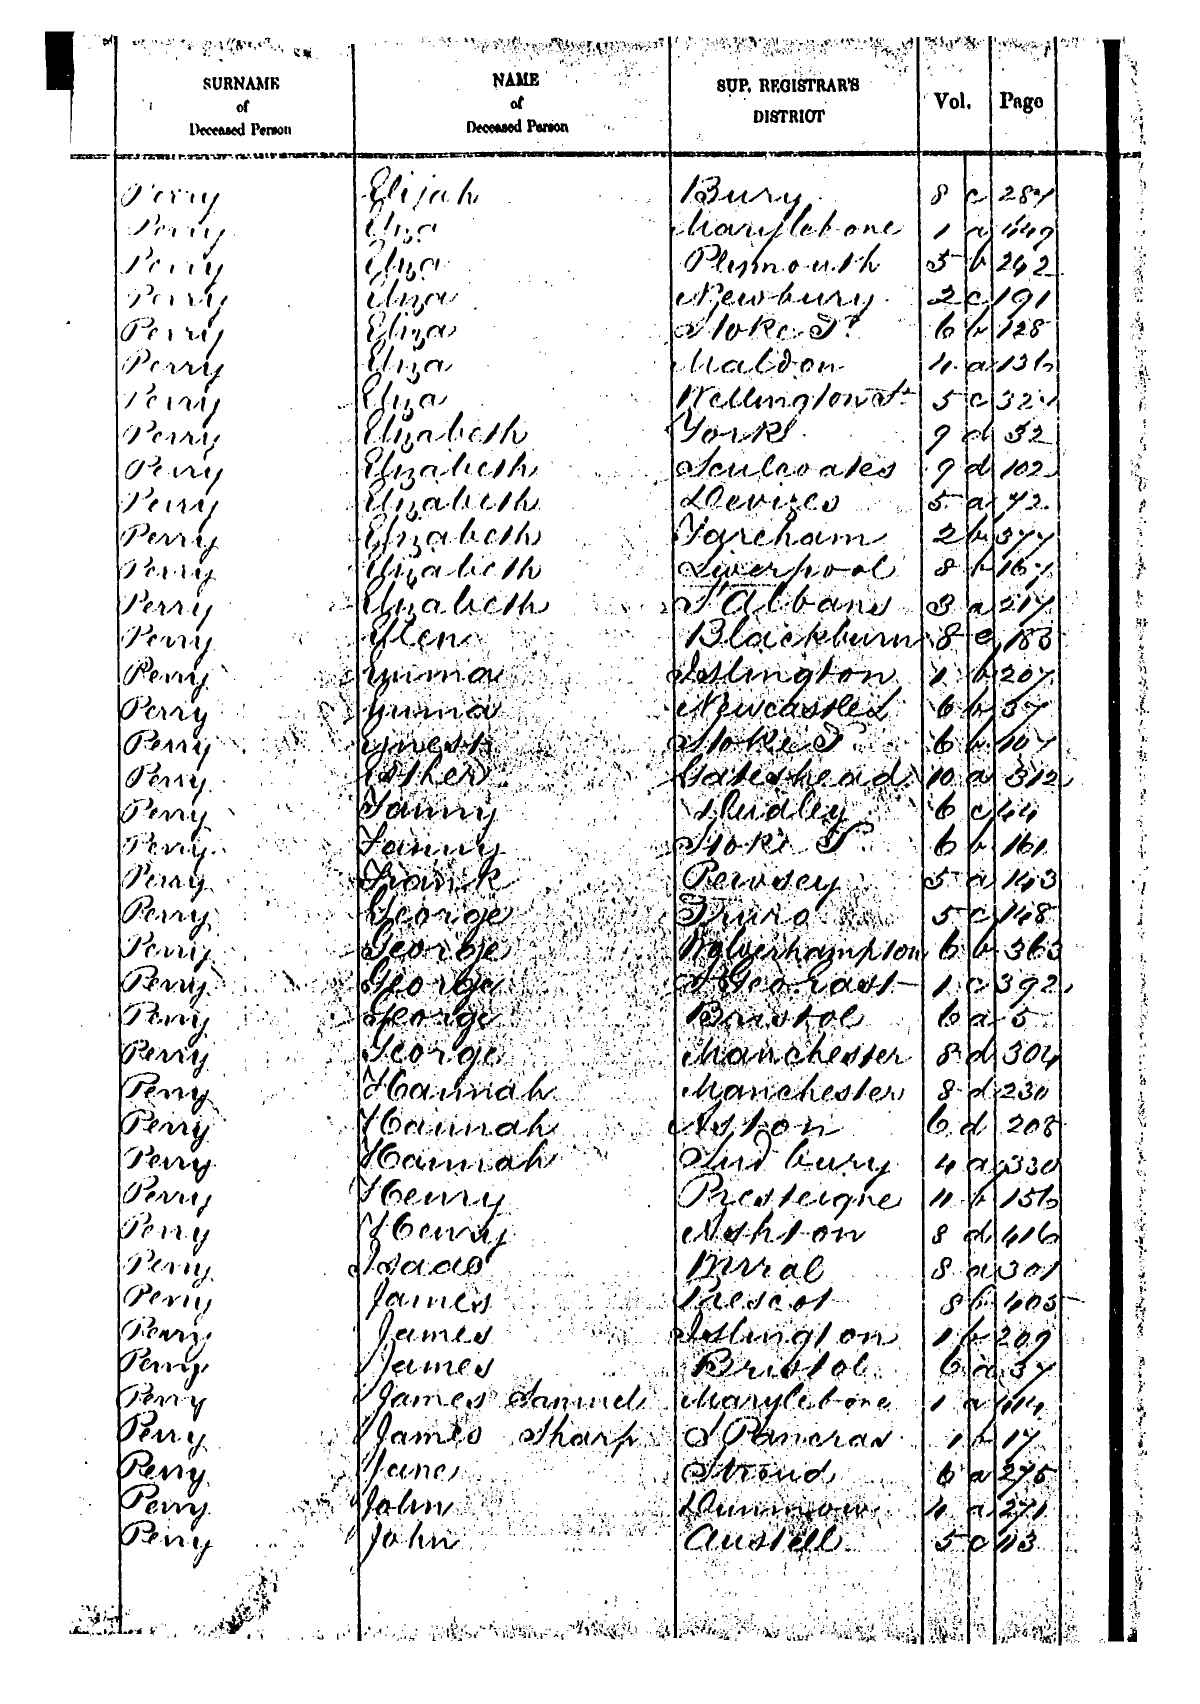 SURNAME of Deceased Person NAME of Deceased Person SUP. REGISTRAR'S DISTRICT Vol. Page
Perry Elijah Bury 8 c 287
Perry Eliza Marylebone 1 a 449
Perry Eliza Plymouth 5 b 242
Perry Eliza Newbury 2 c 191
Perry Eliza Stoke T. 6 b 128
Perry Eliza Maldon 4 a 136
Perry Eliza Wellington St. 5 c 327
Perry Elizabeth York 9 d 32
Perry Elizabeth Sculcoates 9 d 102
Perry Elizabeth Devizes 5 a 72
Perry Elizabeth Fareham 2 b 377
Perry Elizabeth Liverpool 8 b 167
Perry Elizabeth St Albans 3 a 217
Perry Ellen Blackburn 8 e 183
Perry Emma Islington 1 b 207
Perry Emma Newcastle L 6 b 37
Perry Ernest Stoke T. 6 b 107
Perry Esther Gateshead 10 a 312
Perry Fanny Dudley 6 c 44
Perry Fanny Stoke T. 6 b 161
Perry Frank Pewsey 5 a 143
Perry George Truro 5 c 148
Perry George Wolverhampton 6 b 363
Perry George St Geo. East 1 c 392
Perry George Bristol 6 a 5
Perry George Manchester 8 d 304
Perry Hannah Manchester 8 d 230
Perry Hannah Aston 6 d 208
Perry Hannah Sudbury 4 a 330
Perry Henry Presteigne 11 b 156
Perry Henry Ashton 8 d 416
Perry Isaac Wirral 8 a 301
Perry James Prescot 8 b 405
Perry James Islington 1 b 209
Perry James Bristol 6 a 37
Perry James Samuel Marylebone 1 a 414
Perry James Sharp S Pancras 1 b 17
Perry Jane Stroud 6 a 275
Perry John Dunmow 4 a 271
Perry John Austell 5 c 113